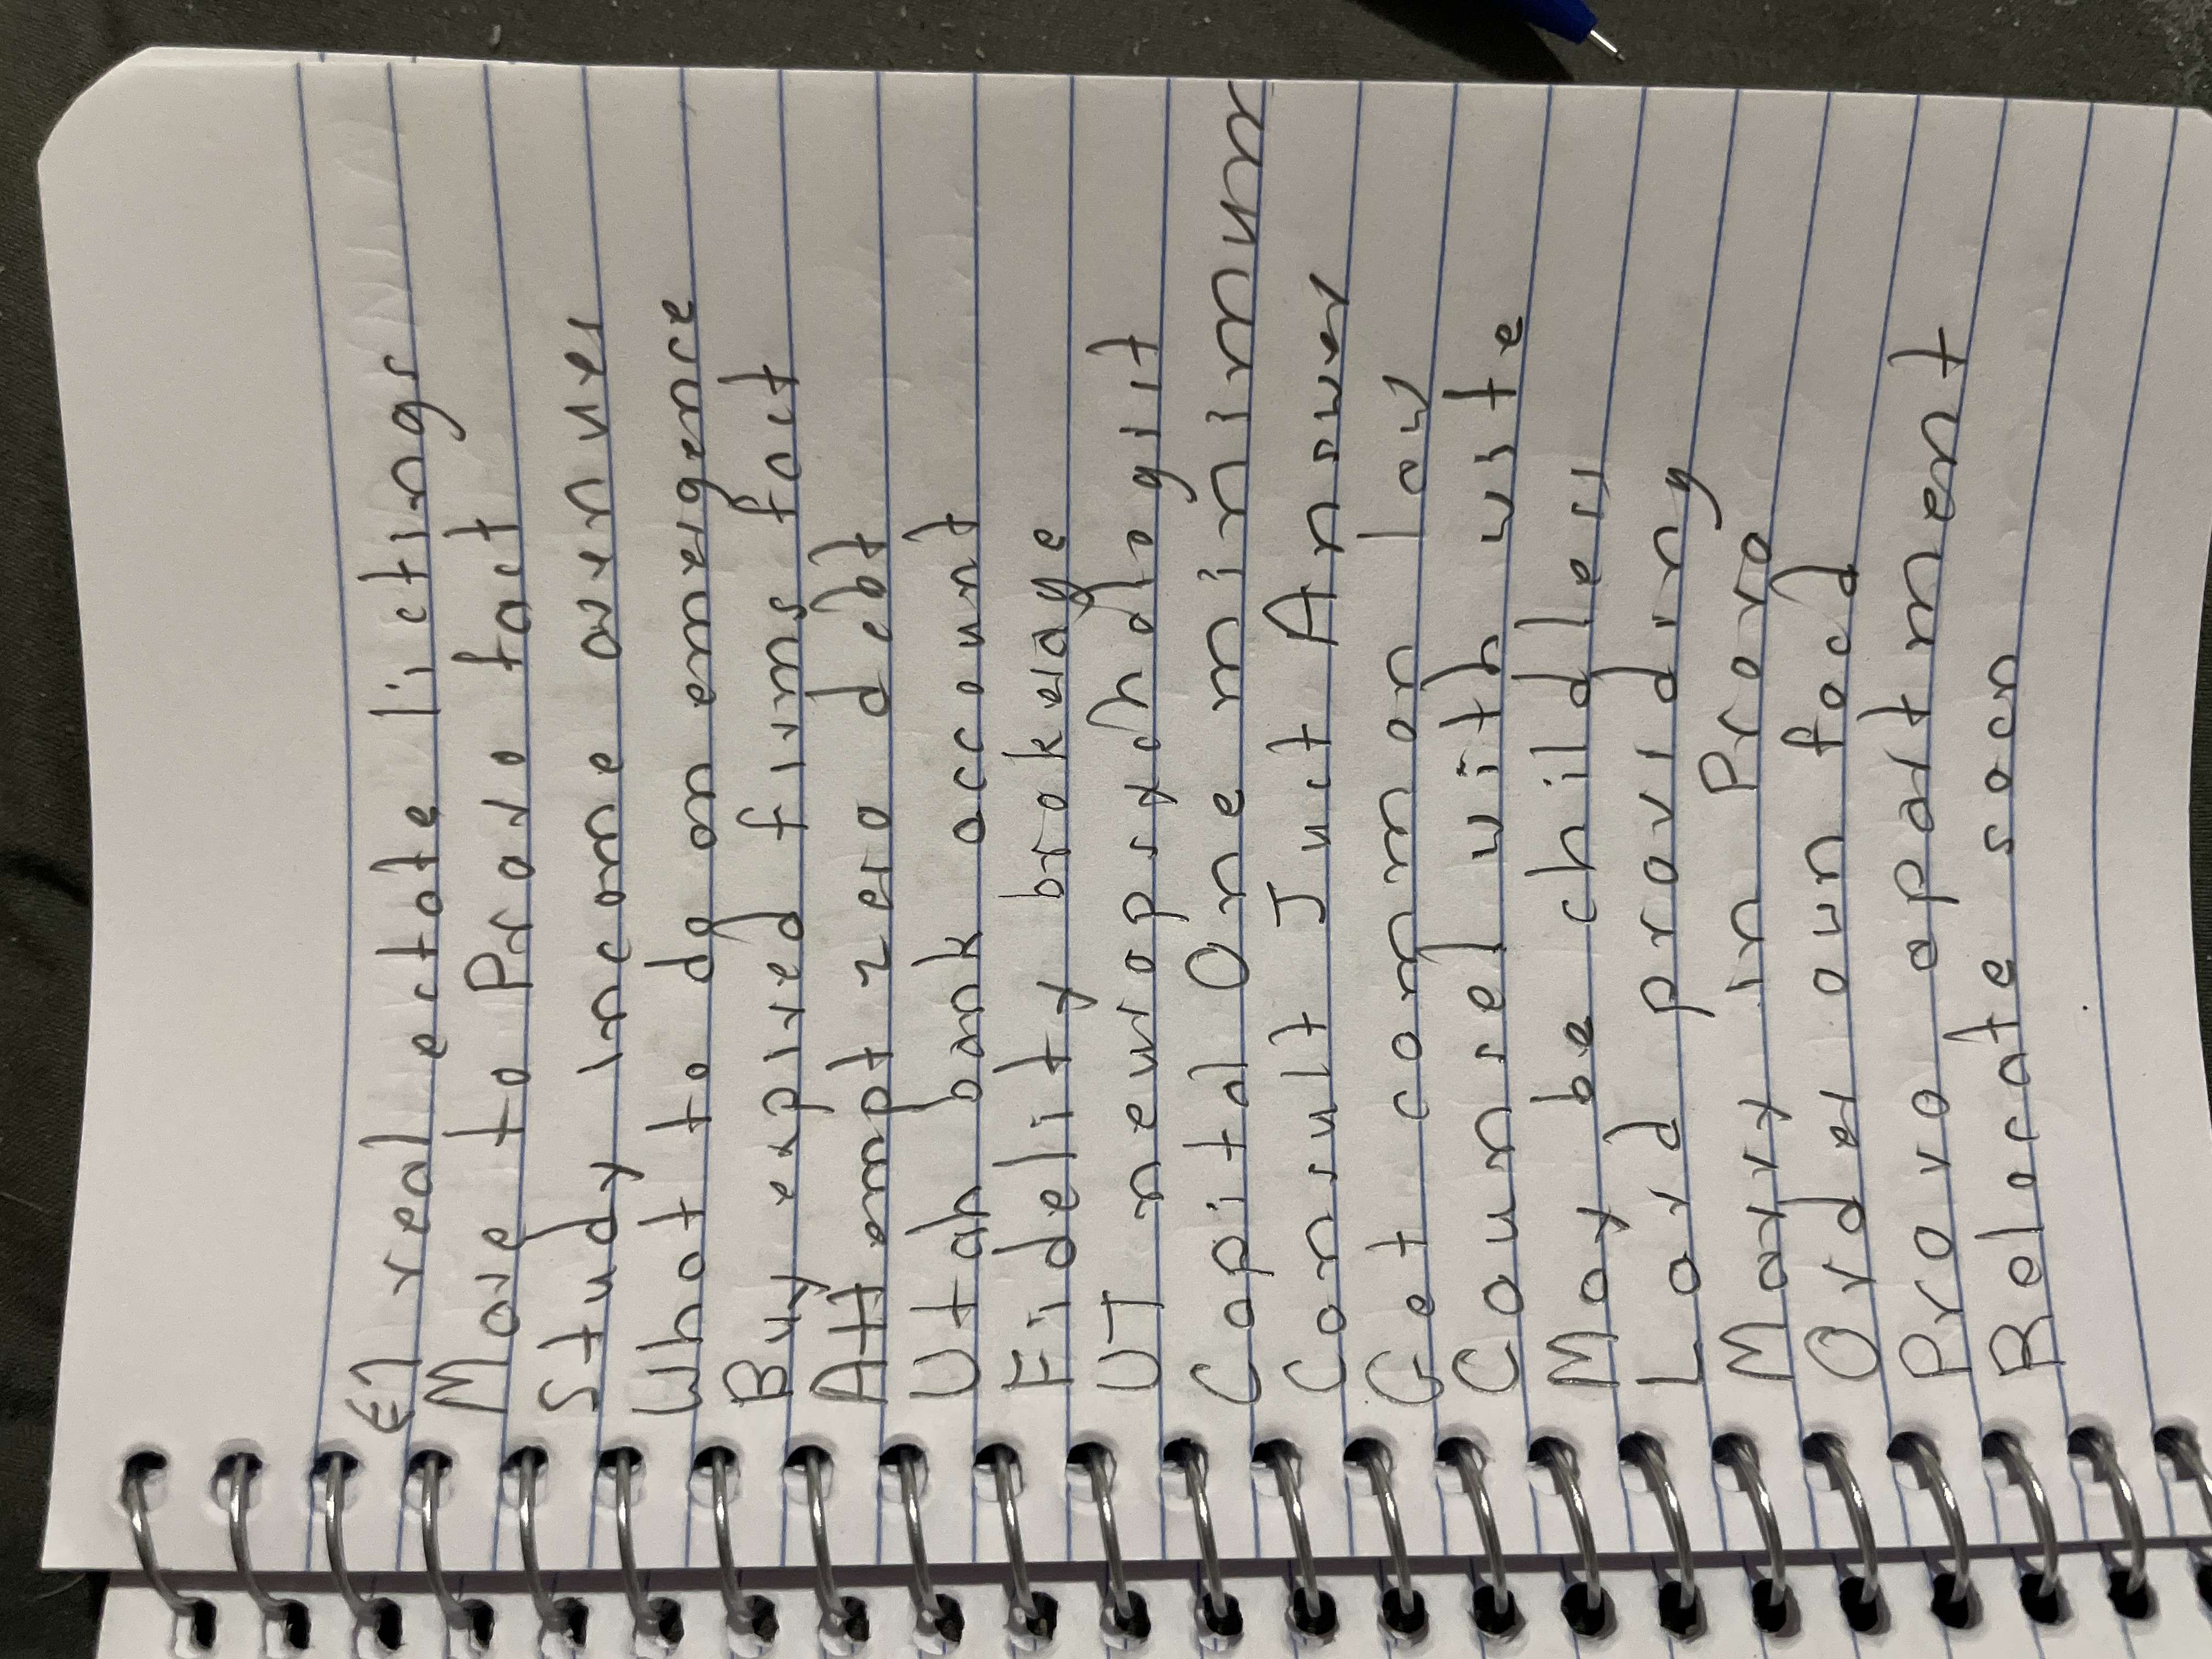 El real estate listings
Move to Provo fast
Study income avenues
What to do
Buy expired firms fast
Attempt zero debt
Utah bank account
Fidelity brokerage
UT neuropsychologist
Capital One minimum
Consult Just Answer
Get common law
Counsel with
May be childless
Lord providing
Marry in Provo
Order own food
Provo apartment
Relocate soon